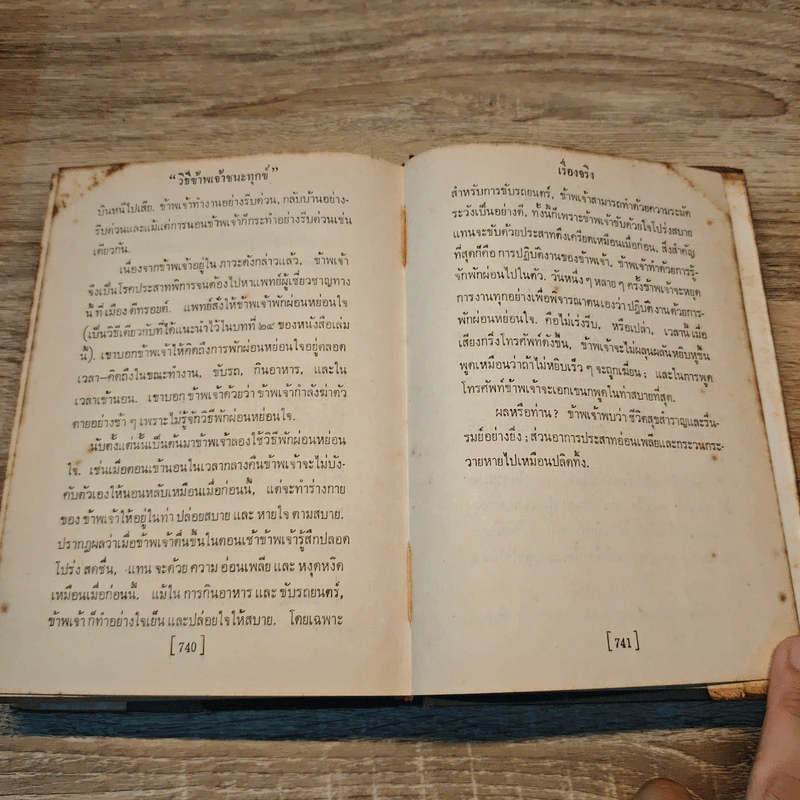 “วิธีข้าพเจ้าชนะทุกข์”
บินหนีไปเสีย. ข้าพเจ้าทำงานอย่างรีบด่วน, กลับบ้านอย่าง-
รีบด่วนและแม้แต่การนอนข้าพเจ้าก็กระทำอย่างรีบด่วนเช่น
เดียวกัน.
เนื่องจากข้าพเจ้าอยู่ใน ภาวะดังกล่าวแล้ว, ข้าพเจ้า
จึงเป็นโรคประสาทพิการจนต้องไปหาแพทย์ผู้เชี่ยวชาญทาง
นี้ ที่ เมือง ดีทรอยต์. แพทย์สั่งให้ข้าพเจ้าพักผ่อนหย่อนใจ
(เป็นวิธีเดียวกับที่ได้แนะนำไว้ในบทที่ ๒๔ ของหนังสือเล่ม
นี้). เขาบอกข้าพเจ้าให้คิดถึงการพักผ่อนหย่อนใจอยู่ตลอด
เวลา—คิดถึงในขณะทำงาน, ขับรถ, กินอาหาร, และใน
เวลาเข้านอน. เขาบอก ข้าพเจ้าด้วยว่า ข้าพเจ้ากำลังฆ่าตัว
ตายอย่างช้า ๆ เพราะไม่รู้จักวิธีพักผ่อนหย่อนใจ.
นับตั้งแต่นั้นเป็นต้นมาข้าพเจ้าลองใช้วิธีพักผ่อนหย่อน
ใจ. เช่นเมื่อตอนเข้านอนในเวลากลางคืนข้าพเจ้าจะไม่บัง-
คับตัวเองให้นอนหลับเหมือนเมื่อก่อนนี้, แต่จะทำร่างกาย
ของ ข้าพเจ้าให้อยู่ในท่า ปล่อยสบาย และ หายใจ ตามสบาย.
ปรากฏผลว่าเมื่อข้าพเจ้าตื่นขึ้นในตอนเช้าข้าพเจ้ารู้สึกปลอด
โปร่ง สดชื่น, แทน จะด้วย ความ อ่อนเพลีย และ หงุดหงิด
เหมือนเมื่อก่อนนี้. แม้ใน การกินอาหาร และ ขับรถยนตร์,
ข้าพเจ้า ก็ทำอย่างใจเย็น และปล่อยใจให้สบาย. โดยเฉพาะ
[740]
เรื่องจริง
สำหรับการขับรถยนตร์, ข้าพเจ้าสามารถทำด้วยความระมัด
ระวังเป็นอย่างดี, ทั้งนี้ก็เพราะข้าพเจ้าขับด้วยใจโปร่งสบาย
แทนจะขับด้วยประสาทตึงเครียดเหมือนเมื่อก่อน. สิ่งสำคัญ
ที่สุดก็คือ การปฏิบัติงานของข้าพเจ้า, ข้าพเจ้าทำด้วยการรู้-
จักพักผ่อนไปในตัว. วันหนึ่ง ๆ หลาย ๆ ครั้งข้าพเจ้าจะหยุด
การงานทุกอย่างเพื่อพิจารณาตนเองว่า ปฏิบัติ งานด้วยการ-
พักผ่อนหย่อนใจ. คือไม่เร่งรีบ, หรือเปล่า, เวลานี้ เมื่อ
เสียงกริ่งโทรศัพท์ดังขึ้น, ข้าพเจ้าจะไม่ผลุนผลันหยิบหูขึ้น
พูดเหมือนว่าถ้าไม่หยิบเร็ว ๆ จะถูกเฆี่ยน; และในการพูด
โทรศัพท์ข้าพเจ้าจะเอกเขนกพูดในท่าสบายที่สุด.
ผลหรือท่าน? ข้าพเจ้าพบว่า ชีวิตสุขสำราญและรื่น-
รมย์อย่างยิ่ง; ส่วนอาการประสาทอ่อนเพลียและกระวนกระ-
วายหายไปเหมือนปลิดทิ้ง.
[741]